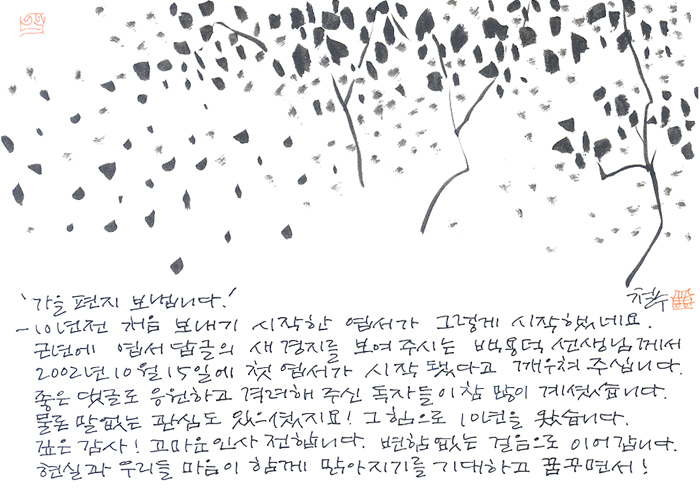 '가을 편지 보냅니다.'
철수
-10년전 처음 보내기 시작한 엽서가 그렇게 시작했네요.
근년에 엽서답글의 새경지를 보여주시는 백용덕 선생님께서
2002년 10월 15일에 첫 엽서가 시작됐다고 깨우쳐 주십니다.
좋은 댓글로 응원하고 격려해 주신 독자들이 참 많이 계셨습니다.
물론 말없는 관심도 있으셨지요! 그 힘으로 10년을 왔습니다.
깊은 감사! 고마운 인사 전합니다. 변함없는 걸음으로 이어갑니다.
현실과 우리들 마음이 함께 맑아지기를 기대하고 꿈꾸면서!